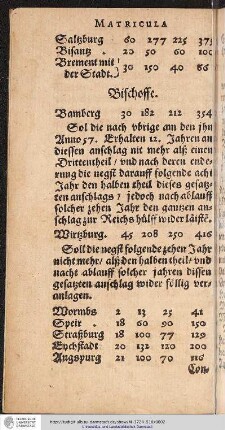 MATRICULA
Saltzburg 60 277 225 373
Bisantz . 20 50 60 100
Brement mit
der Stadt. } 30 150 40 86
Bischoffe.
Bamberg 30 182 212 354
Sol die nach vbrige an den jhn
Anno 57. Erhalten 12. Jahren an
diessen anschlag nit mehr alß einen
Drittentheil / vnd nach deren ende-
rung die negst darauff folgende acht
Jahr den halben theil dieses gesatz-
ten anschlags / jedoch nach ablauff
solcher zehen Jahr den gantzen an-
schlag zur Reichs hülff wider läiste.
Wirtzburg. 45 208 250 416
Soll die negst folgende zehen Jahr
nicht mehr / alß den halben theil / vnd
nacht ablauff solcher jahren dissen
gesatzten anschlag wider söllig ver-
anlagen.
Wormbs 2 13 25 41
Speir . 18 60 90 150
Straßburg 18 100 77 129
Eychstadt 20 132 120 200
Augspurg 21 100 70 116
Con-